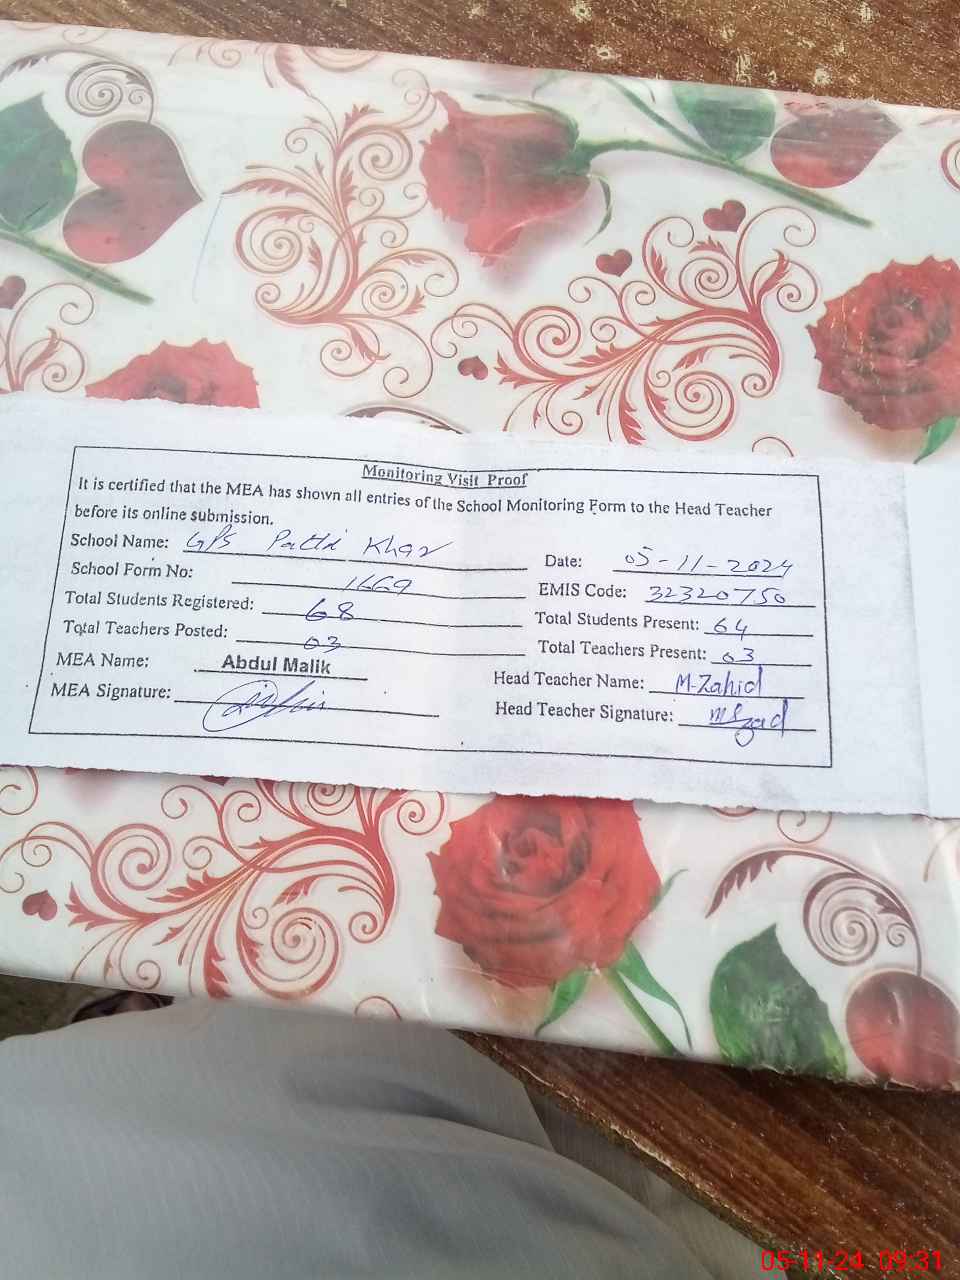 Monitoring Visit Proof
It is certified that the MEA has shown all entries of the School Monitoring Form to the Head Teacher
before its online submission.
School Name: GPS Patti Khar Date: 05-11-2024
School Form No: 1669 EMIS Code: 32320750
Total Students Registered: 68 Total Students Present: 64
Total Teachers Posted: 03 Total Teachers Present: 03
MEA Name: Abdul Malik Head Teacher Name: M-Zahid
MEA Signature: Head Teacher Signature:
05-11-24 09:31